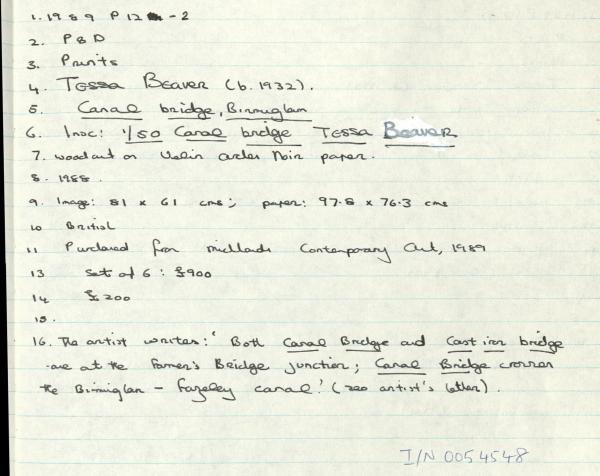 1. 1989 P12 - 2
2. P & D
3. Prints
4. Tessa Beaver (b. 1932).
5. Canal bridge, Birmingham
6. Insc: 1/50 Canal bridge Tessa Beaver
7. woodcut on Velin arches Noir paper.
8. 1988.
9. Image: 81 x 61 cms; paper: 97.8 x 76.3 cms
10 British
11 Purchased from Midlands Contemporary Art, 1989
13 Set of 6: £900
14 £200
15.
16. The artist writes: 'Both Canal Bridge and Cast iron bridge
are at the Farmer's Bridge junction; Canal Bridge crosses
the Birmingham - Fazeley canal.' (see artist's letter).
I/N 0054548